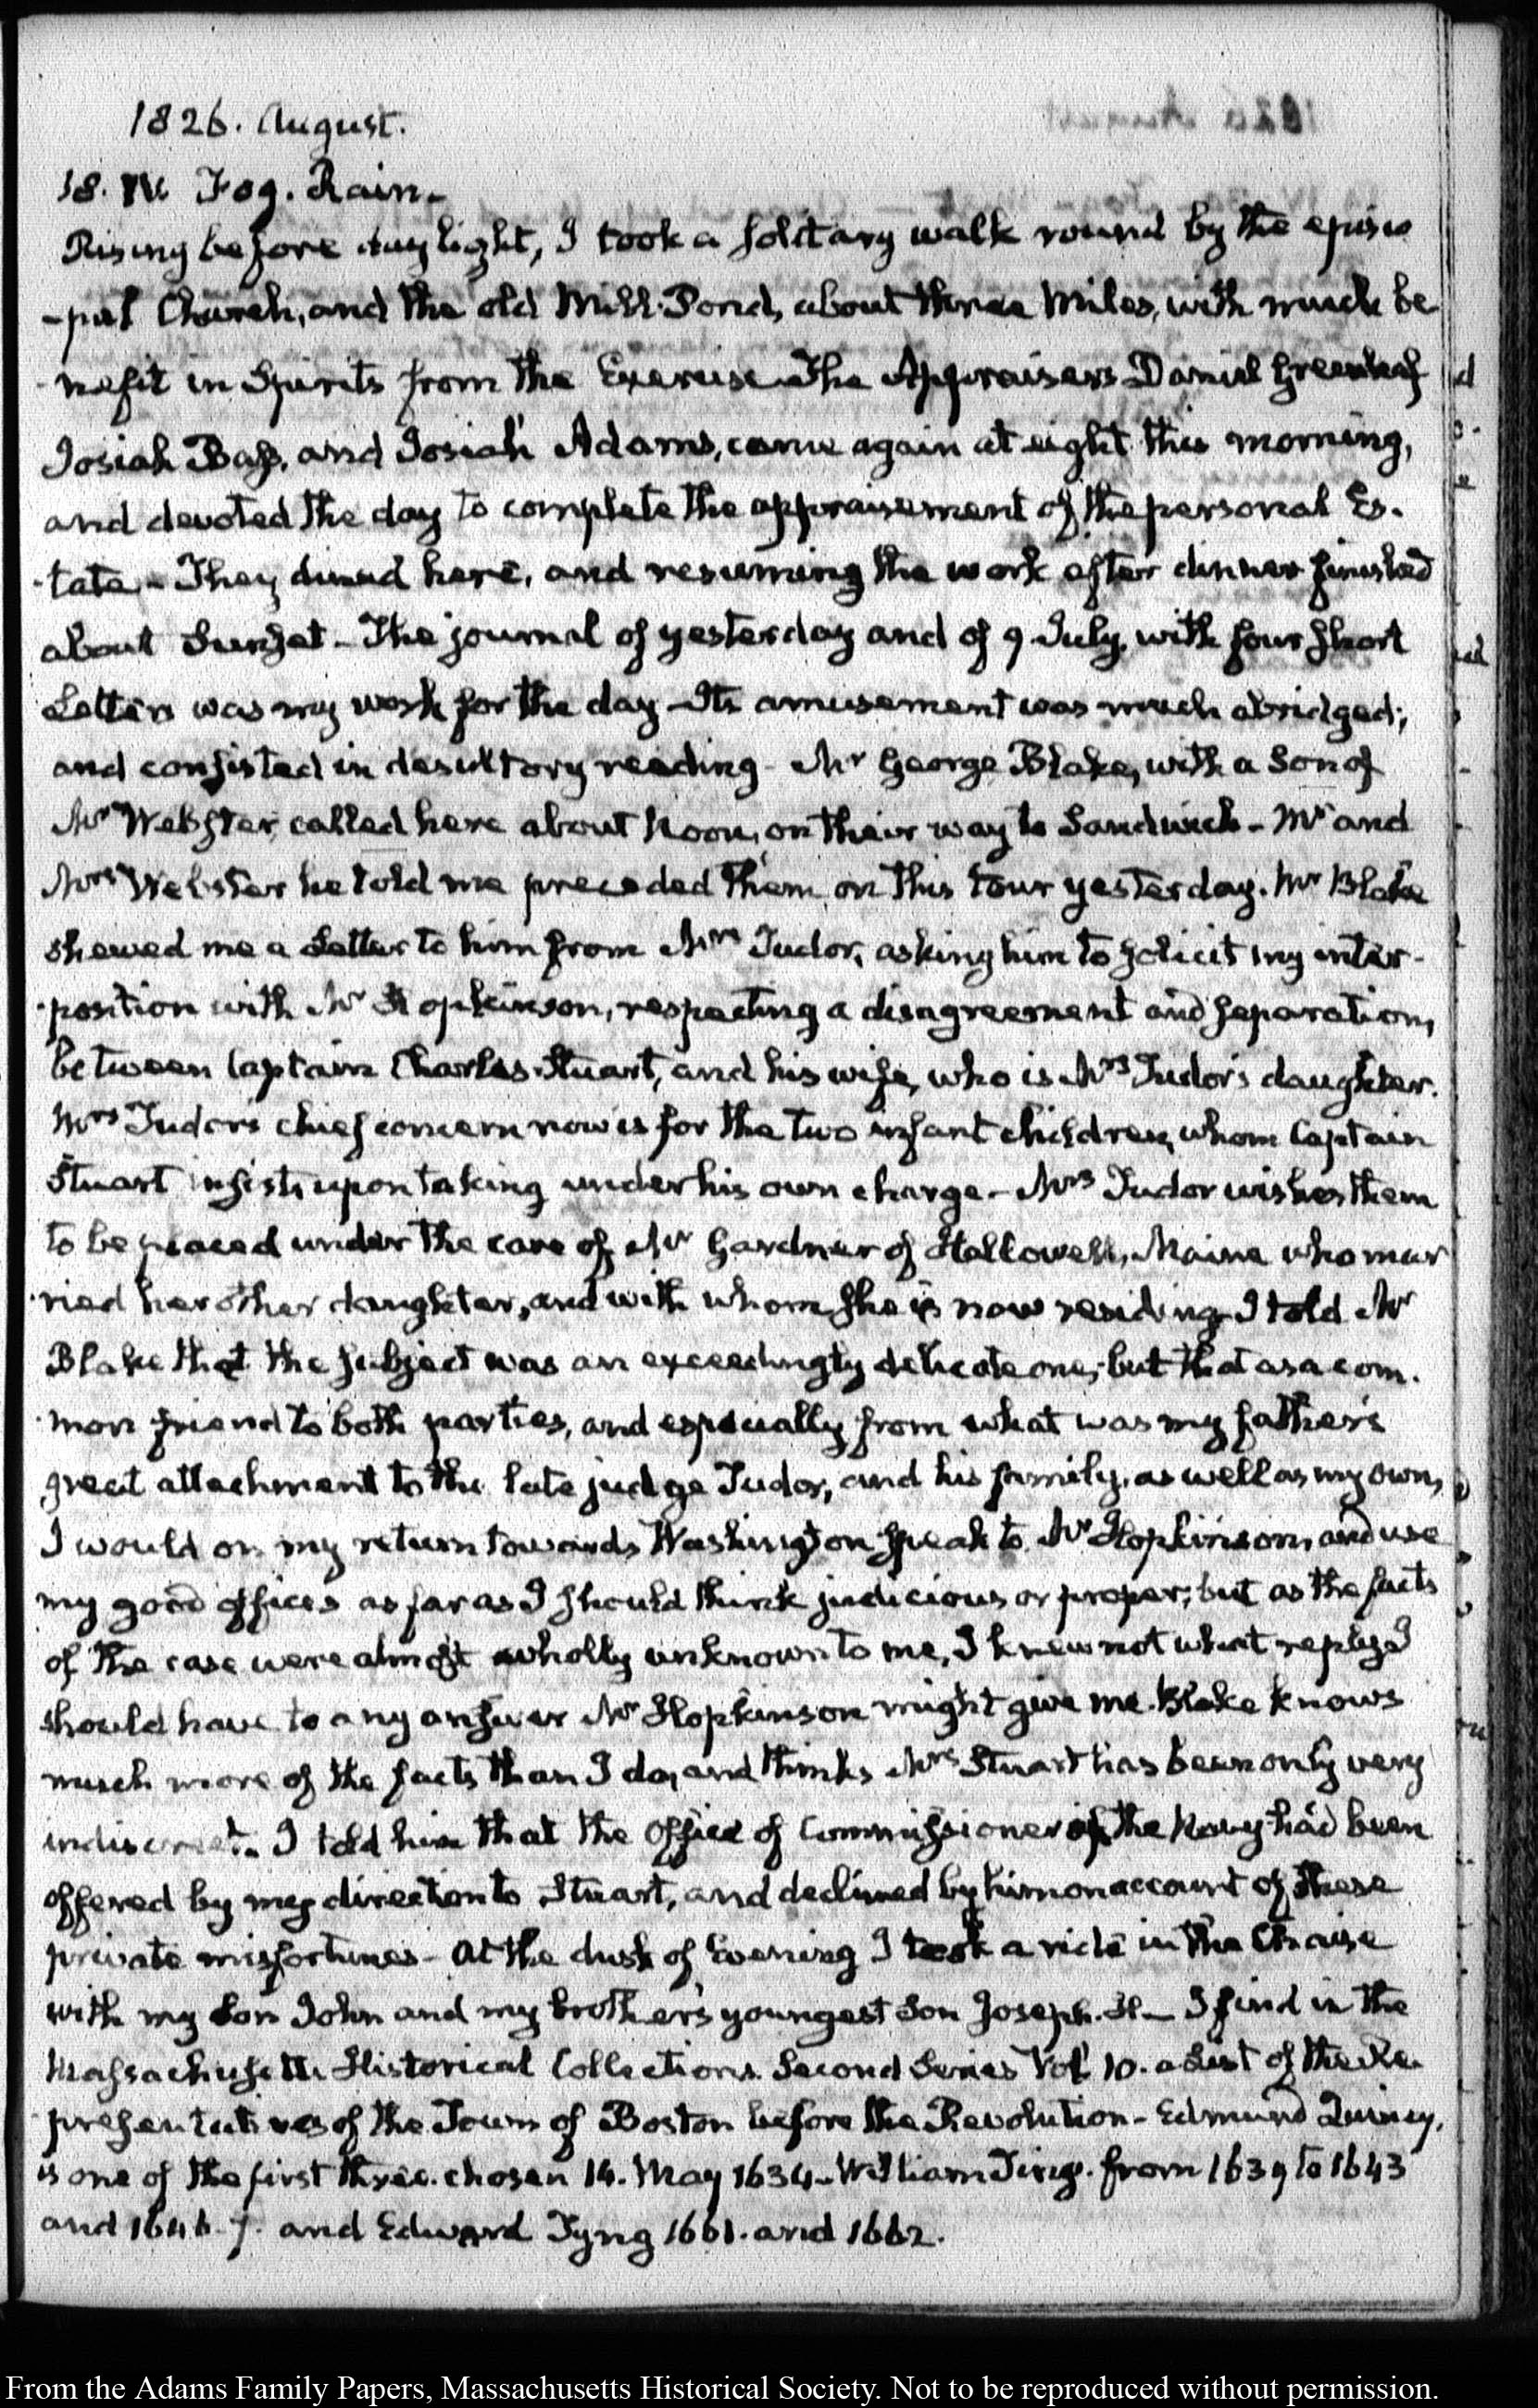 1826. August.
18. IV. Fog. Rain.
Rising before day light, I took a solitary walk round by the episco
-pal Church, and the old Mill-Pond, about three Miles, with much be
nefit in Spirits from the Exercise. The Appraisers Daniel Greenleaf
Josiah Bass, and Josiah Adams, came again at eight this morning,
and devoted the day to complete the appraisement of the personal Es-
-tate - They dined here, and resuming the work after dinner finished
about Sunset - The journal of yesterday and of 9 July, with four short
Letters was my work for the day - Its amusement was much abridged;
and consisted in desultory reading - Mr George Blake, with a Son of
Mr Webster, called here about Noon, on their way to Sandwich - Mr and
Mrs Webster he told me preceded them on this tour yesterday. Mr Blake
shewed me a Letter to him from Mrs Tudor, asking him to solicit my inter-
-position with Mr Hopkinson, respecting a disagreement and separation,
between Captain Charles Stuart, and his wife, who is Mrs Tudor's daughter.
Mrs Tudor's chief concern now is for the two infant children, whom Captain
Stuart insists upon taking under his own charge - Mrs Tudor wishes them
to be placed under the care of Mr Gardner of Hallowell, Maine who mar
-ried her other daughter, and with whom she is now residing. I told Mr
Blake that the subject was an exceedingly delicate one; but that as a com-
-mon friend to both parties, and especially from what was my father's
great attachment to the late judge Tudor, and his family, as well as my own,
I would on my return towards Washington speak to Mr Hopkinson, and use
my good offices as far as I should think judicious or proper; but as the facts
of the case were almost wholly unknown to me, I knew not what reply I
should have to any answer Mr Hopkinson might give me. Blake knows
much more of the facts than I do, and thinks Mrs Stuart has been only very
indiscreet. I told him that the Office of Commissioner of the Navy had been
offered by my direction to Stuart, and declined by him on account of these
private misfortunes - At the dusk of Evening I took a ride in the Chaise
with my Son John and my brother's youngest Son Joseph. H - I find in the
Massachusetts Historical Collections. Second Series Vol. 10. a List of the Re-
-presentatives of the Town of Boston before the Revolution - Edmund Quincy,
is one of the first three. chosen 14. May 1634 - William Ting. from 1639 to 1643
and 1646. 7. and Edward Tyng 1661. and 1662.
From the Adams Family Papers, Massachusetts Historical Society. Not to be reproduced without permission.